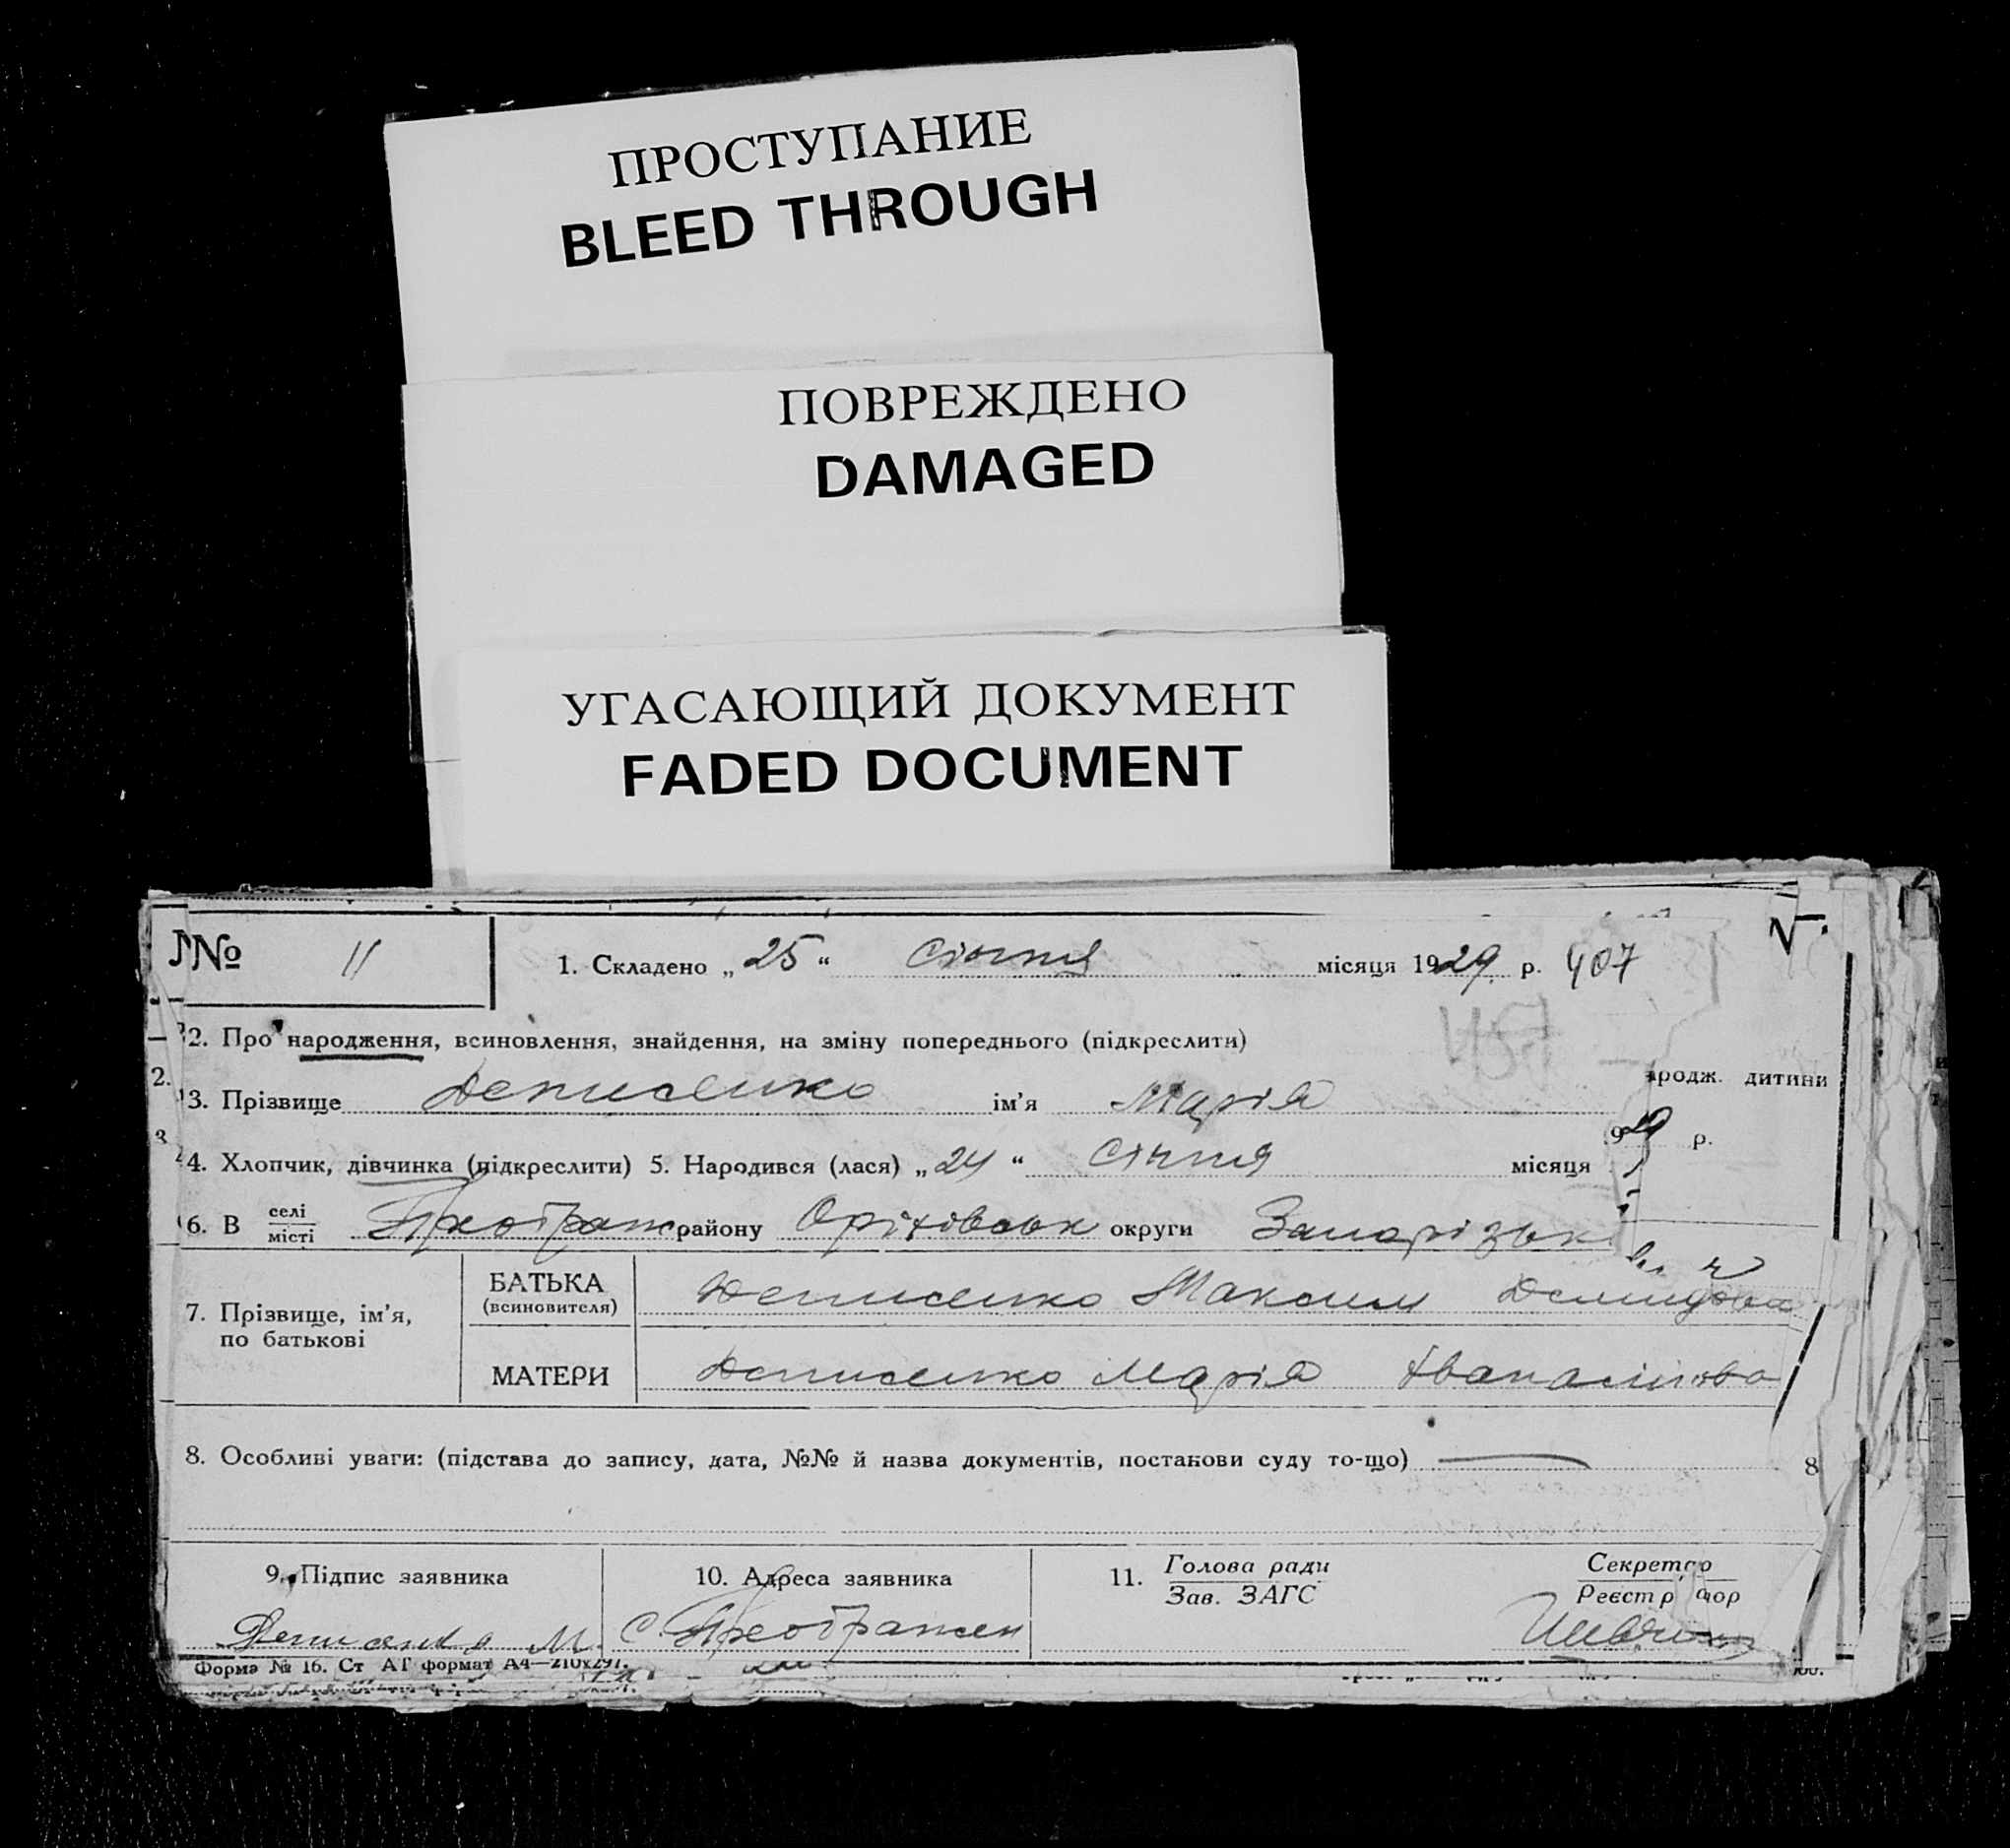 ПРОСТУПАНИЕ
BLEED THROUGH
ПОВРЕЖДЕНО
DAMAGED
УГАСАЮЩИЙ ДОКУМЕНТ
FADED DOCUMENT
№ 11 1. Складено „25“ січня місяця 1929 р. 407
2. Про народження, всиновлення, знайдення, на зміну попереднього (підкреслити)
родж. дитини
3. Прізвище Денисенко ім'я Марія
4. Хлопчик, дівчинка (підкреслити) 5. Народився (лася) „24“ січня місяця 929 р.
6. В селі місті Преображ району Оріхівськ округи Запорізьк
7. Прізвище, ім'я, по батькові
БАТЬКА (всиновителя) Денисенко Максим
МАТЕРИ Денисенко Марія
8. Особливі уваги: (підстава до запису, дата, №№ й назва документів, постанови суду то-що) 8
9. Підпис заявника 10. Адреса заявника 11. Голова ради Зав. ЗАГС Секретар Реєстратор
Денисенко М. С. Преображен
Форма № 16. Ст АГ формат А4—210х297.